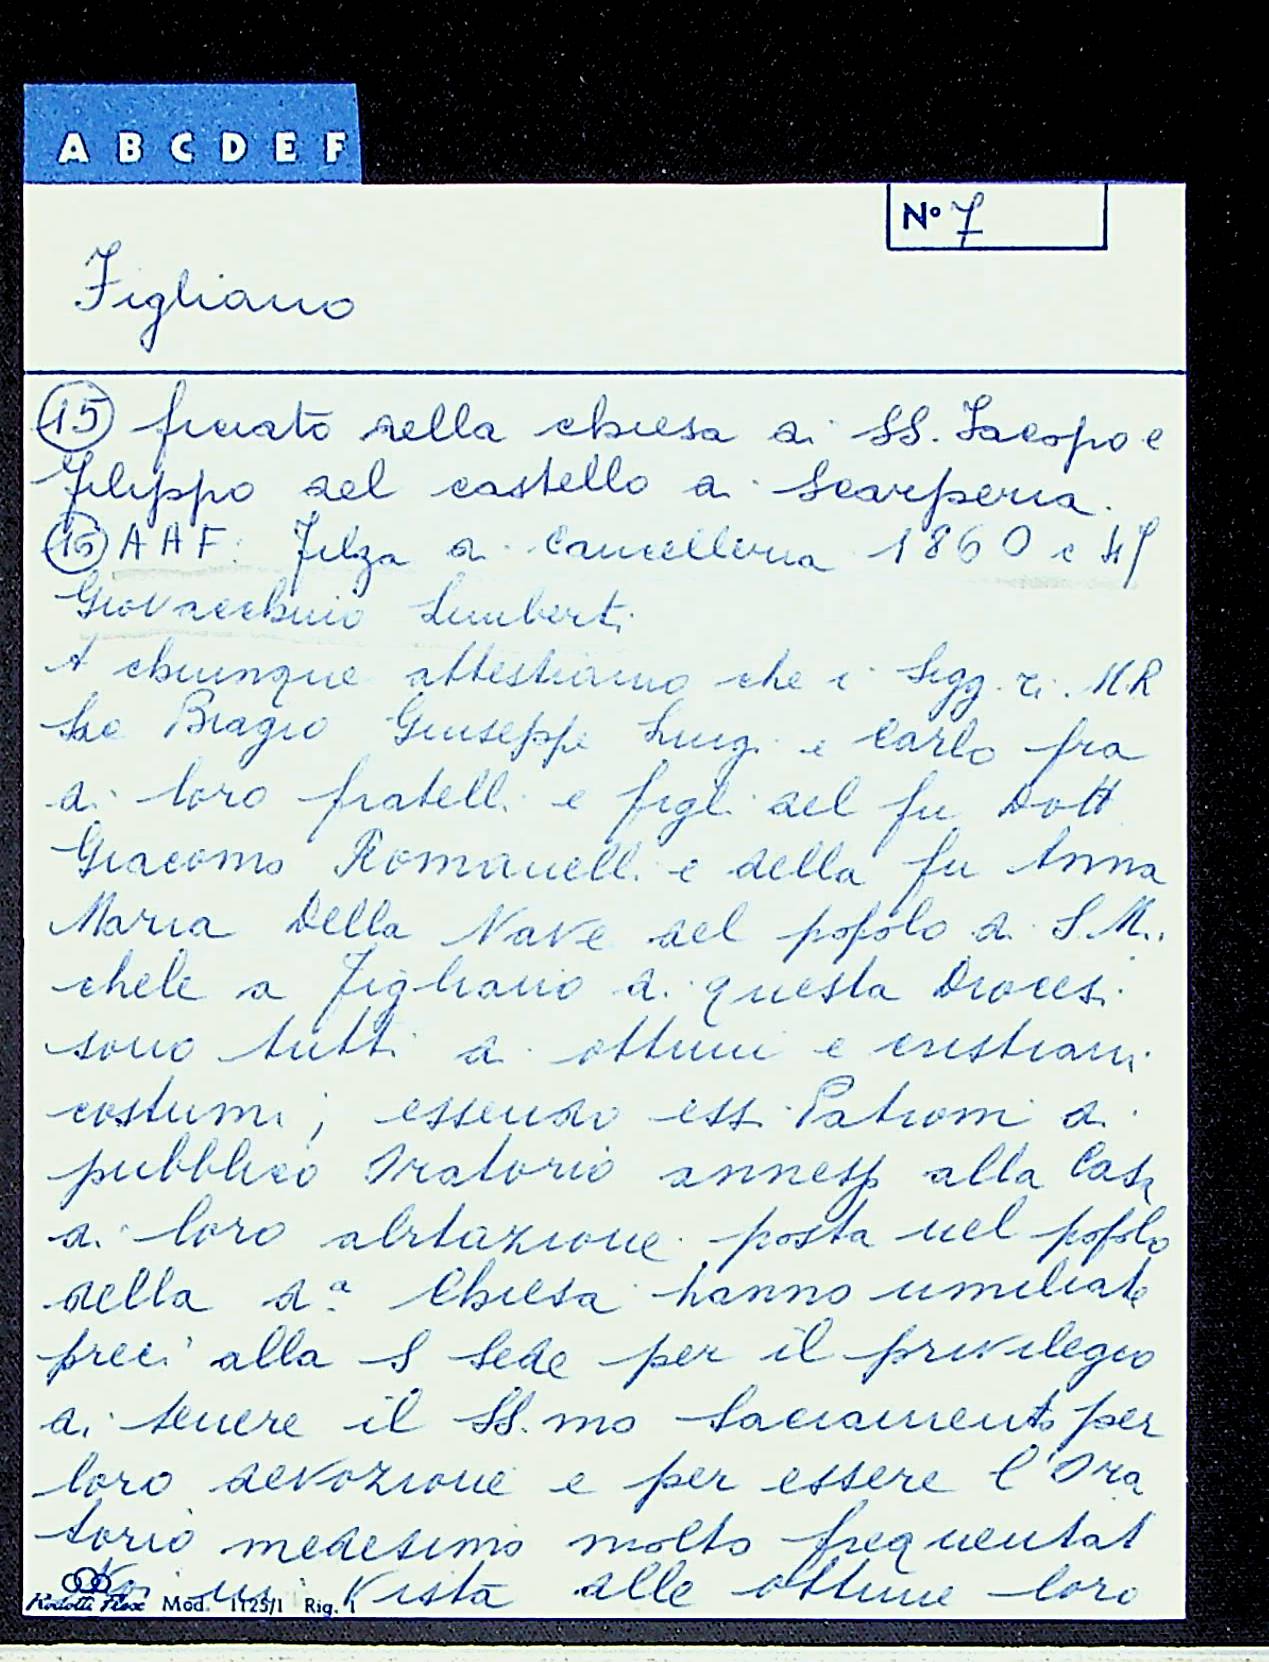 A B C D E F
N° 7
Figliano
15 ficiato nella chiesa di SS. Iacopo e
Filippo del castello di Scarperia.
16 AAF: Filza di Cancelleria 1860 e
Giovacchino Limberti
A chiunque attestiamo che i Sigg.ri. MR
Biagio Giuseppe Luigi e Carlo fra
di loro fratelli e figli del fu Dott
Giacomo Romanelli e della fu Anna
Maria Della Nave del popolo di S. Mi.
chele a Figliano di questa Diocesi.
sono tutti di ottimi e cristiani
costumi; essendo essi Patroni di
pubblico Oratorio annesso alla Casa
di loro abitazione posta nel popolo
della d.a Chiesa hanno umiliate
preci alla S Sede per il privilegio
di tenere il SS.mo Sacramento per
loro devozione e per essere l'Ora
torio medesimo molto frequentat
Noi in Vista alle ottime loro
Mod. 1125/1 Rig. 1